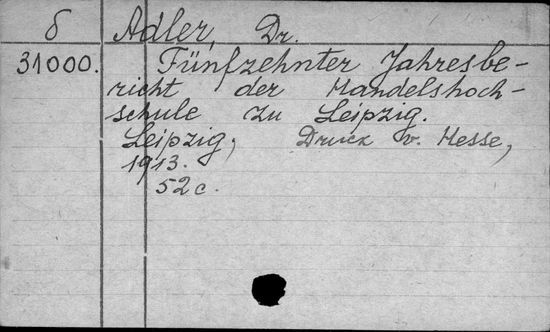 δ Adler, Dr.
31000. Fünfzehnter Jahresbe-
richt der Handelshoch-
schule zu Leipzig.
Leipzig, Druck v. Hesse,
1913.
52 c.